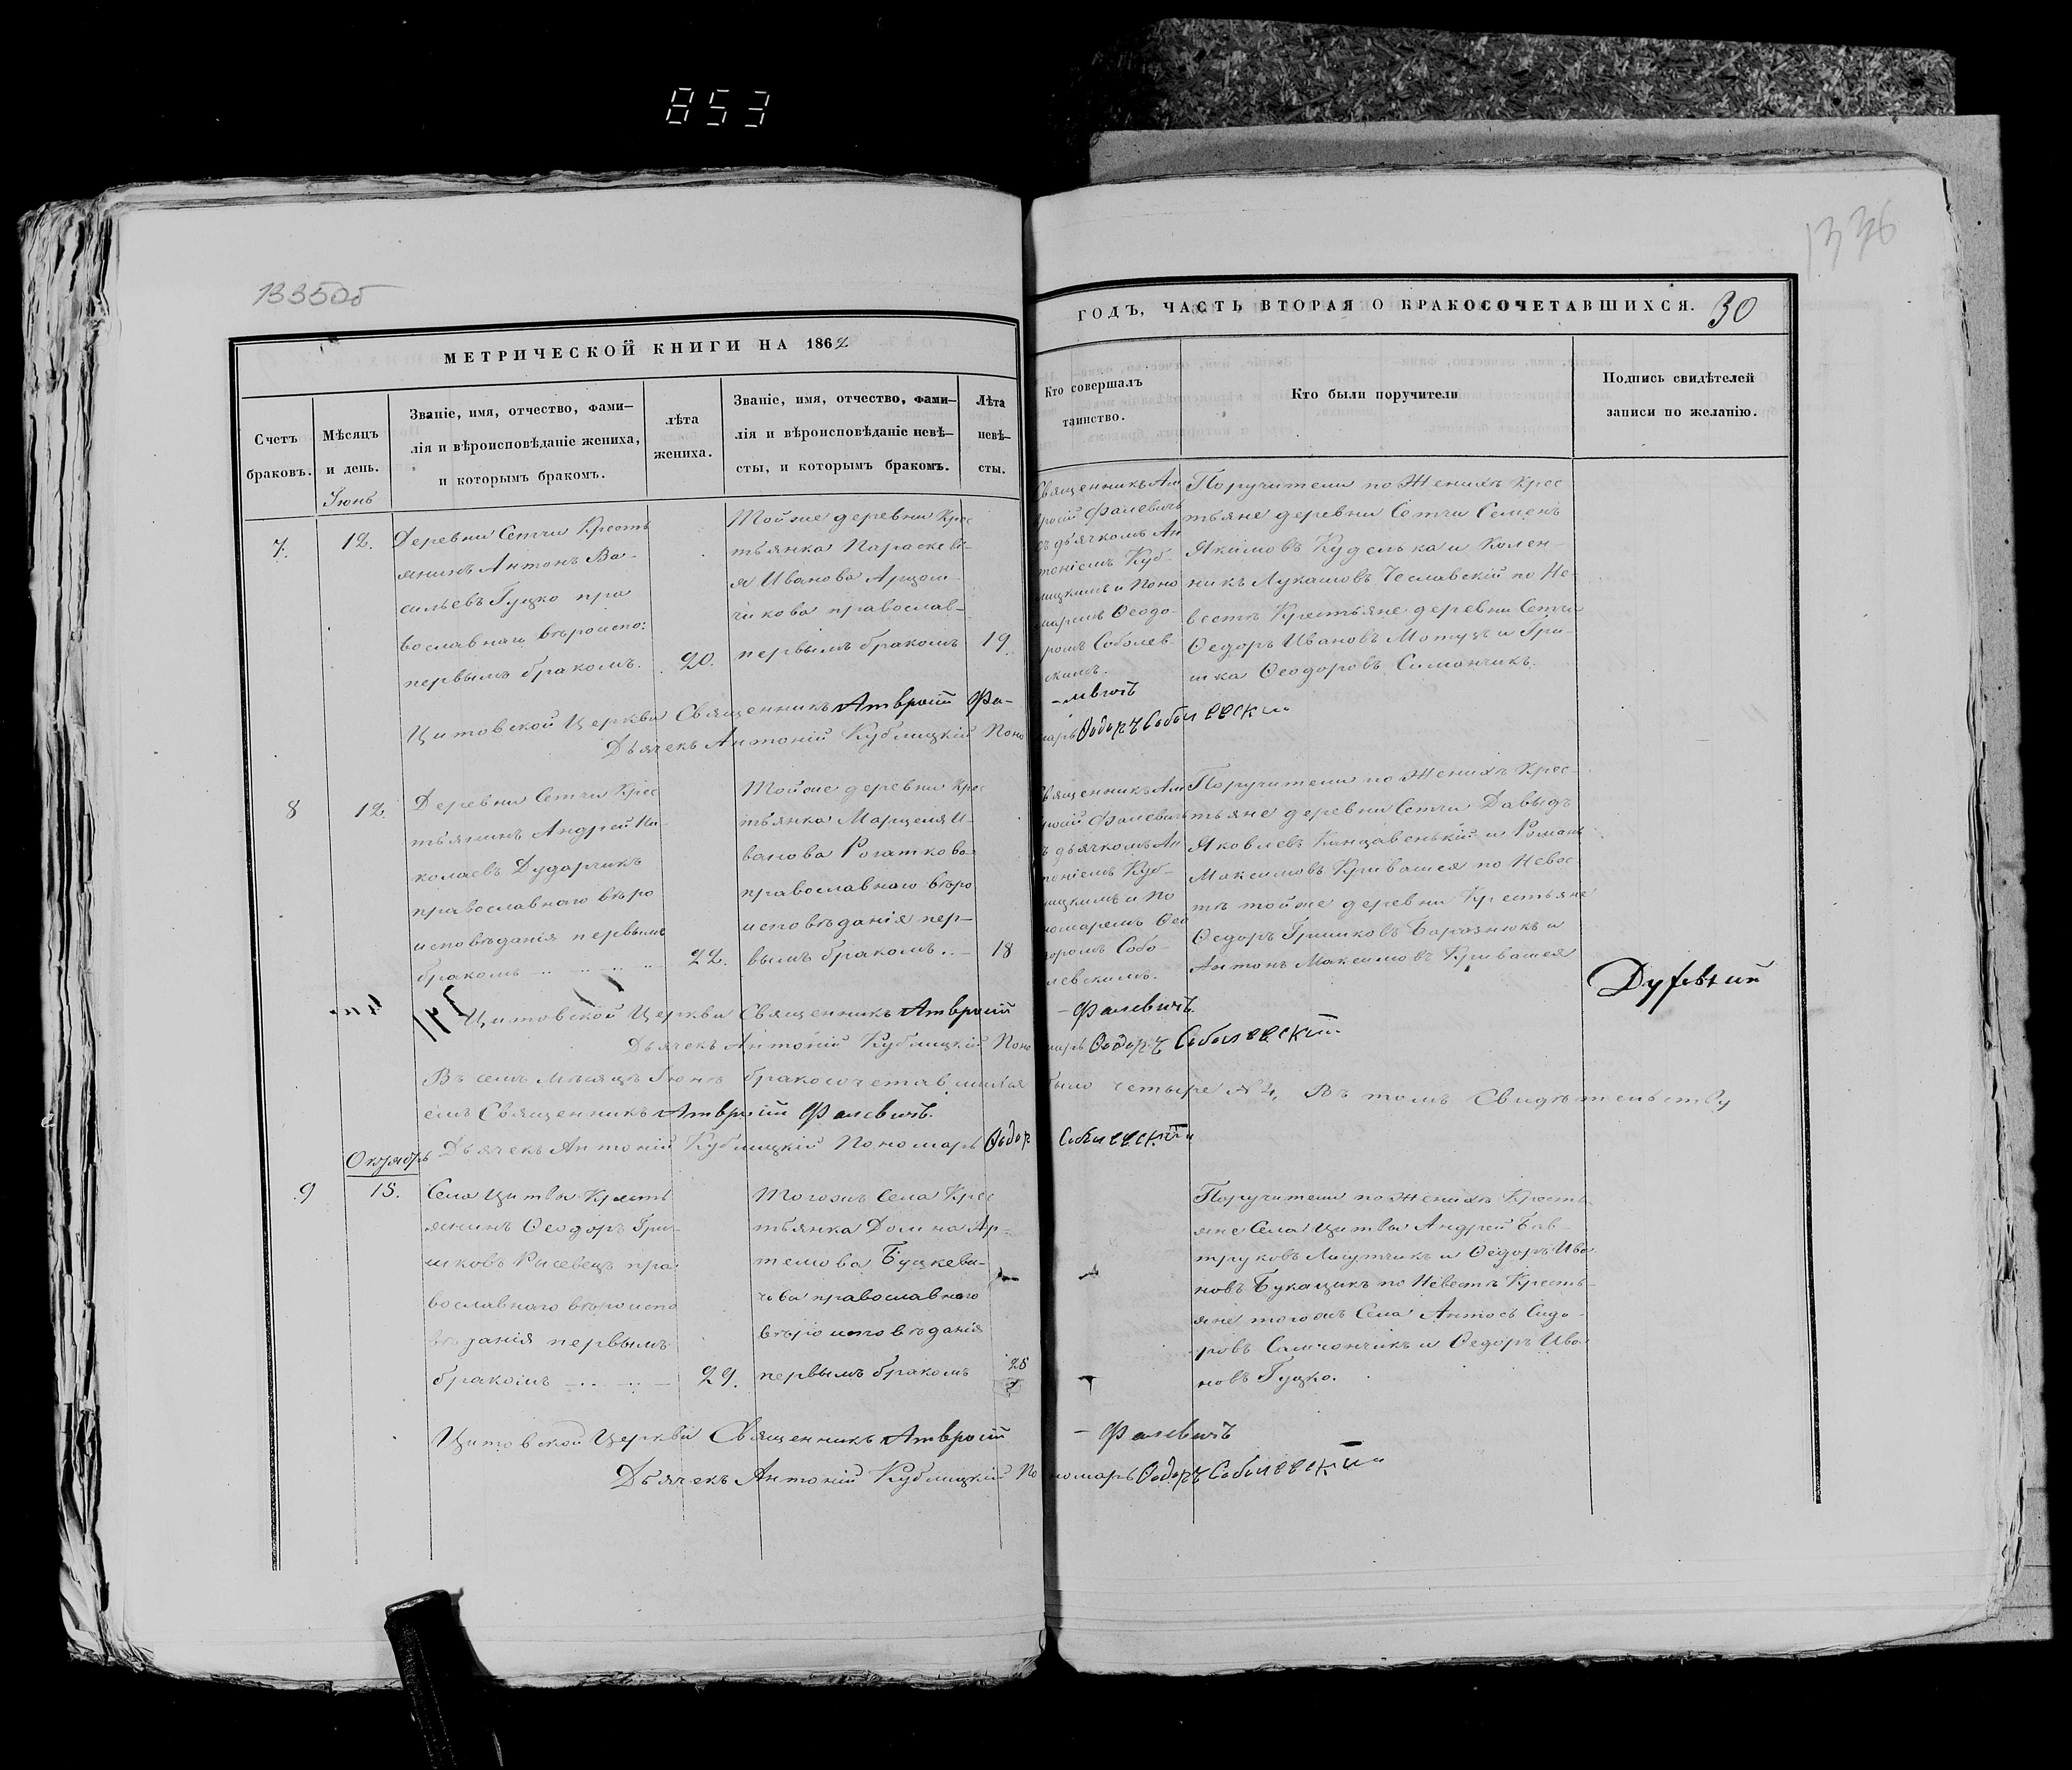 853
1335об
1336
МЕТРИЧЕСКОЙ КНИГИ НА 1862
ГОДЪ, ЧАСТЬ ВТОРАЯ О БРАКОСОЧЕТАВШИХСЯ. 30
Счетъ
браковъ.
Мѣсяцъ
и день.
Званіе, имя, отчество, фами–
лія и вѣроисповѣданіе жениха,
и которымъ бракомъ.
лѣта
жениха.
Званіе, имя, отчество, фами–
лія и вѣроисповѣданіе невѣ–
сты, и которымъ бракомъ.
Лѣта
невѣ–
сты.
Кто совершалъ
таинство.
Кто были поручители
Подпись свидѣтелей
записи по желанію.
Іюнь
7.
12.
Деревни Сетчи Кресть
янинъ Антонъ Ва-
сильевъ Гуцко пра
вославнаго вѣроиспо:
первымъ бракомъ.
20.
Тойже деревни Крес
тьянка Параскеві-
я Иванова
чикова православ-
первымъ бракомъ
19
Священникъ Ам
вросій Фалевичъ
съ дьячкомъ Ан
тоніемъ Куб-
лицкимъ и Поно
маремъ Ѳеодо-
ромъ Соболев-
скимъ.
Поручители по Женихѣ Крес
тьяне деревни Сетчи Семенъ
Якимовъ Куделька и Колен-
никъ Лукашовъ Чеславскій по Не-
вестѣ Крестьяне деревни Сетчи
Ѳедоръ Ивановъ Мотузъ и Гри-
шка Ѳеодоровъ Симанчикъ.
Цитовской Церкви Священникъ Амвросій Фа-
-левичъ
Дьячекъ Антоній Кублицкій Поно
марь Ѳедоръ Соболевскій
8
12.
Деревни Сетчи Крес
тьянинъ Андрей Ни-
колаевъ Дударчикъ
православнаго вѣро
исповѣданія первымъ
бракомъ
22.
Тойже деревни Крес
тьянка Марцеля И-
ванова Рогаткова
православнаго вѣро
исповѣданія пер-
вымъ бракомъ..
18
Священникъ Ам
вросій Фалевичъ
съ дьячкомъ Ан
тоніемъ Куб-
лицкимъ и По
номаремъ Ѳео
доромъ Собо-
левскимъ.
Поручители по Женихѣ Крес-
тьяне деревни Сетчи Давыдъ
Яковлевъ Канцавенькій и Романъ
Максимовъ Кривошея по Невес
тѣ тойже деревни Крестьяне
Ѳедоръ Гришковъ Баразнюкъ и
Антонъ Максимовъ Кривошея
Цитовской Церкви Священникъ Амвросій
- Фалевичъ.
Дьячекъ Антоній Кублицкій Поно
марь Ѳедоръ Соболевскій
Въ семъ Мѣсяцѣ Іюнѣ бракосочетавшихся
было четыре № 4, Въ томъ Свидѣтельству
емъ Священникъ Амвросій Фалевичъ.
Дьячекъ Антоній Кублицкій Пономарь Ѳедор
Соболевскій
Октябрь
9
15.
Села Цитвы Кресть
янинъ Ѳеодоръ Гри-
шковъ Рысевецъ пра:
вославнаго вѣроиспо
вѣданія первымъ
бракомъ
29.
Тогожъ Села Крес
тьянка Домна Ар-
темова Буцкеви-
чова православнаго
вѣроисповѣданія
первымъ бракомъ
25
Поручители по Женихѣ Кресть
яне Села Цитвы Андрей Бав-
труковъ Лагутчикъ и Ѳедоръ Ива
новъ Букащикъ по Невестѣ Кресть-
яне тогожъ Села Антось Сидо-
ровъ Самсончикъ и Ѳедоръ Ива
новъ Гуцко.
Цитовской Церкви Священникъ Амвросій
- Фалевичъ
Дьячекъ Антоній Кублицкій По
номарь Ѳедоръ Соболевскій